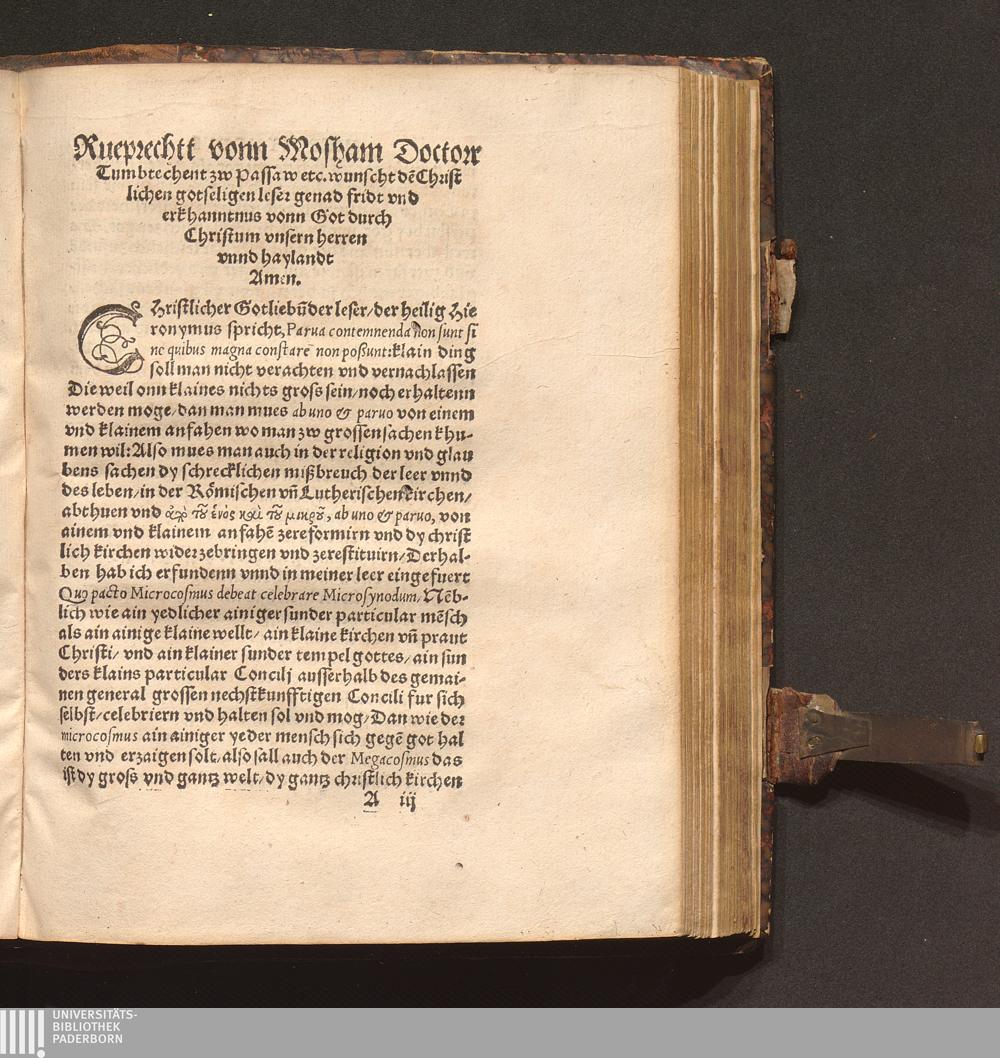 Rueprechtt vonn Mosham Doctorr
Tumbtechent zw Passaw etc. wunscht dē Christ
lichen gotseligen leser genad fridt vnd
erkhanntnus vonn Got durch
Christum vnsern herren
vnnd haylandt
Amen.
CHristlicher Gotliebūder leser/ der heilig Hie
ronymus spricht, Parua contemnenda non sunt sī
ne quibus magna constare non poßunt: klain ding
soll man nicht verachten vnd vernachlassen
Die weil onn klaines nichts gross sein/ noch erhaltenn
werden moge/ dan man mues ab uno & paruo von einem
vnd klainem anfahen wo man zw grossen sachen khu-
men wil: Also mues man auch in der religion vnd glau
bens sachen dy schrecklichen mißbreuch der leer vnnd
des leben/ in der Römischen vñ Lutherischen kirchen/
abthuen vnd ἀπὸ τοῦ ἑνὸς καὶ τοῦ μικροῦ, ab uno & paruo, von
ainem vnd klainem anfahē zereformirn vnd dy christ
lich kirchen widerzebringen vnd zerestituirn/ Derhal-
ben hab ich erfundenn vnnd in meiner leer eingefuert
Quo pacto Microcosmus debeat celebrare Microsynodum/ Nēb-
lich wie ain yedlicher ainiger sunder particular mēsch
als ain ainige klaine wellt/ ain klaine kirchen vñ praut
Christi/ vnd ain klainer sunder tempel gottes/ ain sun
ders klains particular Concilj ausserhalb des gemai-
nen general grossen nechstkunfftigen Concili fur sich
selbst/ celebriern vnd halten sol vnd mog/ Dan wie der
microcosmus ain ainiger yeder mensch sich gegē got hal
ten vnd erzaigen solt/ also sall auch der Megacosmus das
ist dy groß vnd gantz welt/ dy gantz christlich kirchen
A iij
UNIVERSITÄTS-
BIBLIOTHEK
PADERBORN